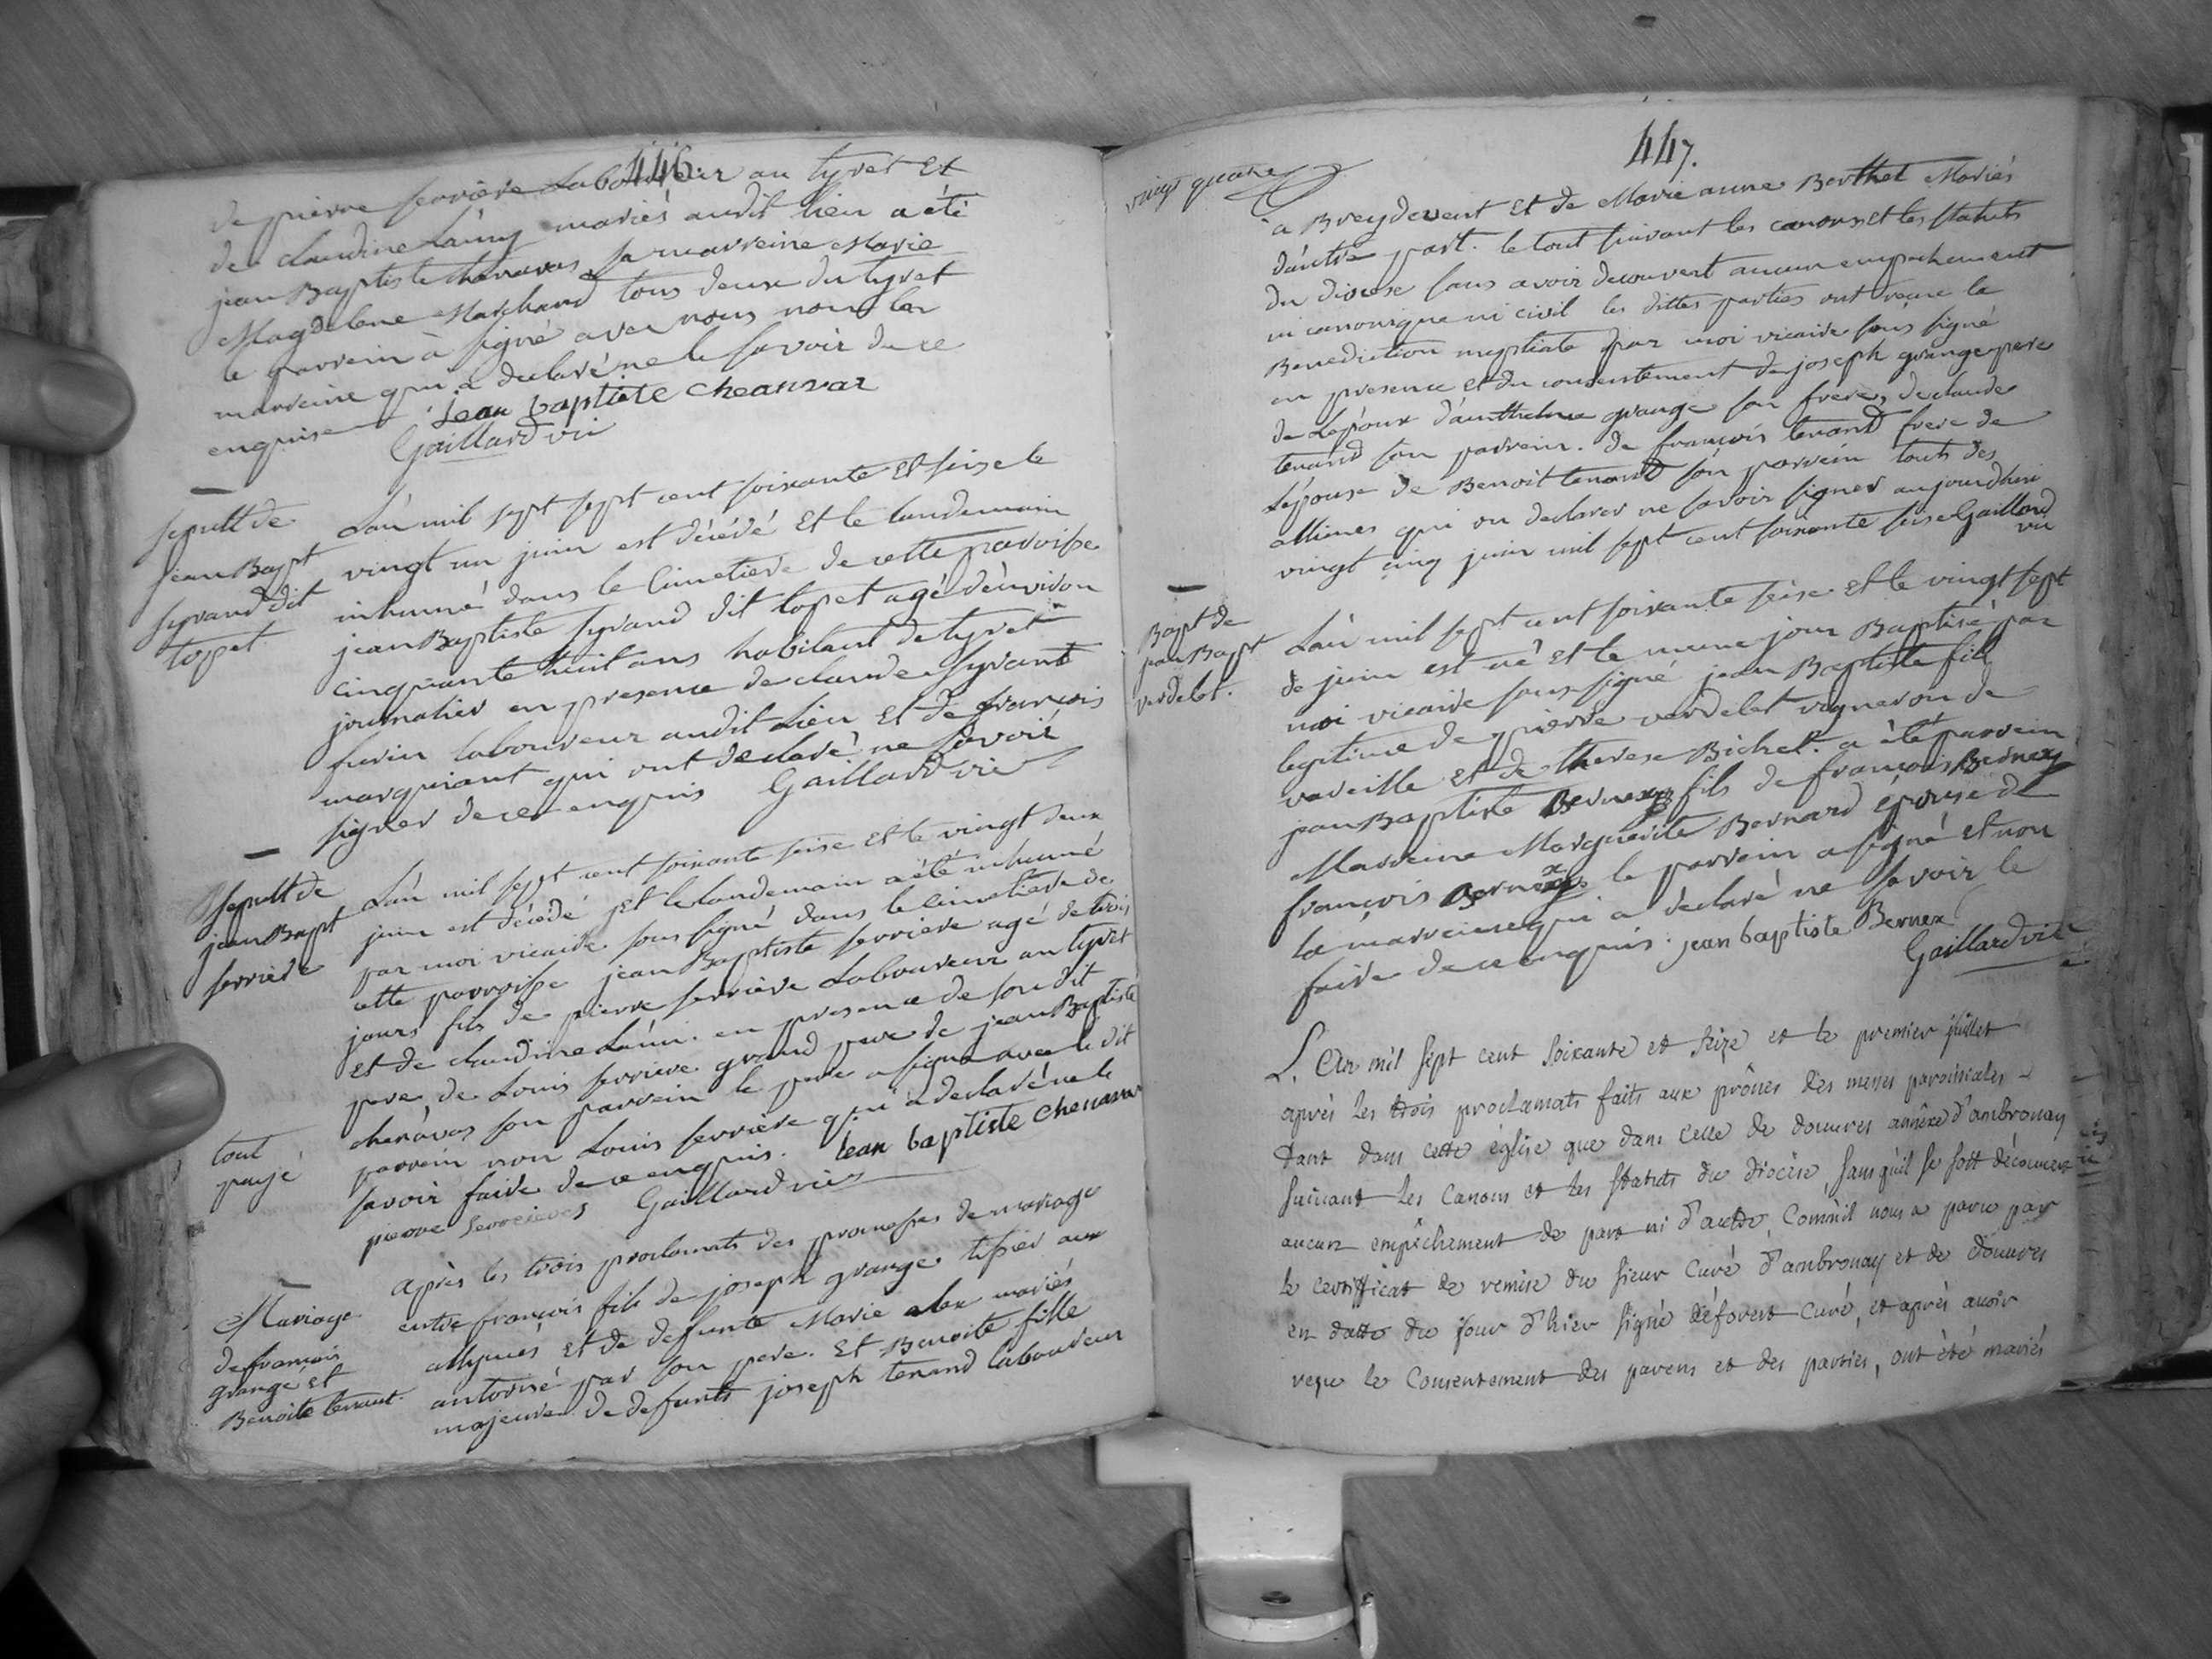 446.
de pierre ferrière Laboureur au tyret Et
de claudine Lainy mariés audit lieu a été
jean Baptiste chenavas sa marreine Marie
Magdelene Marchand tous deux du tyret
le parrein à signé avec nous non la
marreine qui a declaré ne le savoir de ce
enquise. jean baptiste cheanvar
Gaillard vic
sepult de
jean Bapt
syrand dit
topet
L'an mil sept sept cent soixante Et seise le
vingt un juin est décédé Et le landemain
inhumé dans le Cimetiere de cette paroisse
jean Baptiste syrand dit topet agé d'environ
cinquante huit ans habitant de tyret
journalier en presence de claude syrand
furin laboureur audit Lieu Et de françois
marquiant qui ont declaré ne savoir
signer de ce enquis Gaillard vic
sepult de
jean Bapt
ferrière
L'an mil sept cent soixante seise Et le vingt deux
juin est décédé Et le landemain a été inhumé
par moi vicaire sous signé dans le cimetiere de
cette parroisse jean Baptiste ferriere agé de trois
jours fils de pierre ferrière Laboureur au tyret
et de claudine Lainj. en presence de son dit
pere, de Louis ferriere grand pere de jean Baptiste
chenavas son parrein le pere a signé avec le dit
parrein non Louis ferrière qui a declaré ne le
savoir faire de ce enquis. jean baptiste chenavar
pierre ferrieres Gaillard vic
tout
payé
Mariage
de françois
grange et
Benoite tenant.
Après les trois proclamats des promesses de mariage
entre françois fils de joseph grange tissier aux
allymes et de deffunte Marie alex mariés
autorisé par son pere. Et Benoite fille
majeure de defunts joseph tenand laboureur
447.
vingt quatre
à Breydevent Et de Marie anne Berthet Mariés
d'autre part. le tout suivant les canons et les statuts
du diocese sans avoir decouvert aucun empechement
ni canonique ni civil les dittes parties ont reçue la
Benediction nuptiale par moi vicaire sous signé
en presence et du consentement de joseph grange pere
de L'époux d'anthelme grange son frere, de claude
tenand son parrein. de françois tenand frere de
L'épouse de Benoit tenand son parrein touts des
allimes qui on declarer ne savoir signer aujourdhui
vingt cinq juin mil sept cent soixante seise Gaillard
vic
Bapt de
jean Bapt
verdelet.
L'an mil sept cent soixante seise et le vingt sept
de juin est né Et le meme jour Baptisé par
moi vicaire sous signé jean Baptiste fils
legitime de pierre verdelet vigneron de
vareille et de therese Bichet. a été parrein
jean Baptiste Bernex fils de françois Bernex
Marreine Marguerite Bernard epouse de
françois Bernex le parrein a signé et non
la marreine qui a declaré ne savoir le
faire de ce enquis. jean baptiste Bernex
Gaillard vic
L'an mil sept cent soixante et seize et le premier juillet
après les trois proclamats faits aux prônes des messes paroissiales
tant dans cette église que dans celle de douvres annêxe d'ambronay
suivant les Canons et les statuts du diocèse, sans qu'il se soit découvert
aucun empêchement de part ni d'autre, Comme il nous a paru par
le certifficat de remise du sieur Curé d'ambronay et de douvres
en datte du jour d'hier signé déforest Curé, et après avoir
reçu le Consentement des parens et des parties, ont été mariés